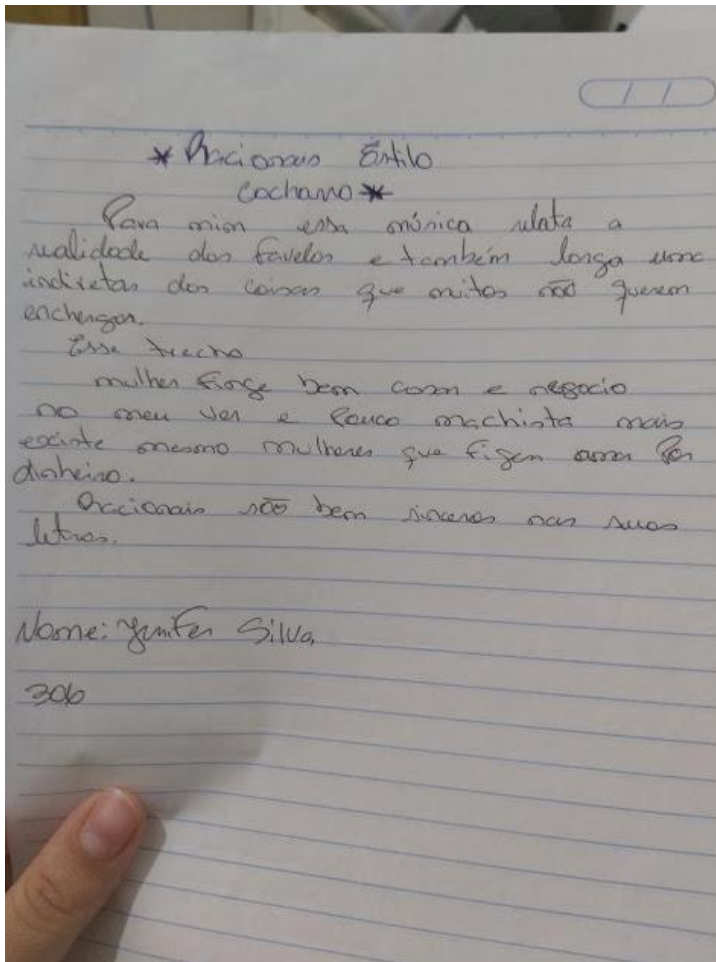 * Racionais Estilo
Cachorro *
Para mim essa música relata a
realidade das favelas e também lança uma
indiretas das coisas que muitos não querem
enchergar.
Esse trecho
mulher finge bem casa e negocio
no meu ver e pouco machista mais
existe mesmo mulheres que figem amor por
dinheiro.
Racionais são bem sinceros nas suas
letras.
Nome: Silva
306